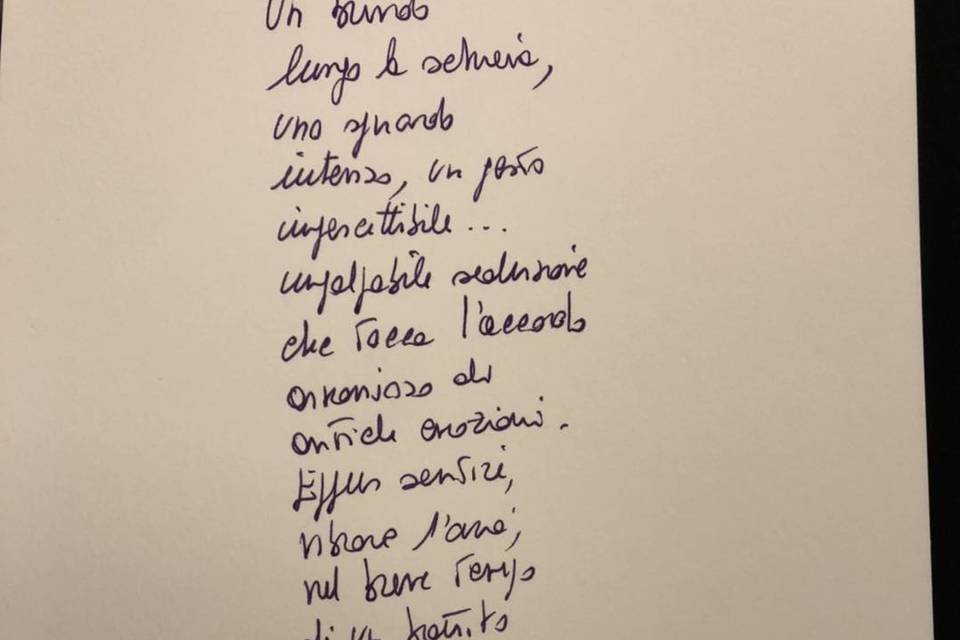 Un brivido
lungo la schiena,
uno sguardo
intenso, un gesto
impercettibile...
impalpabile seduzione
che tocca l'accordo
armonioso di
antiche emozioni.
sentire,
vibrare l'
nel breve tempo
di un battito